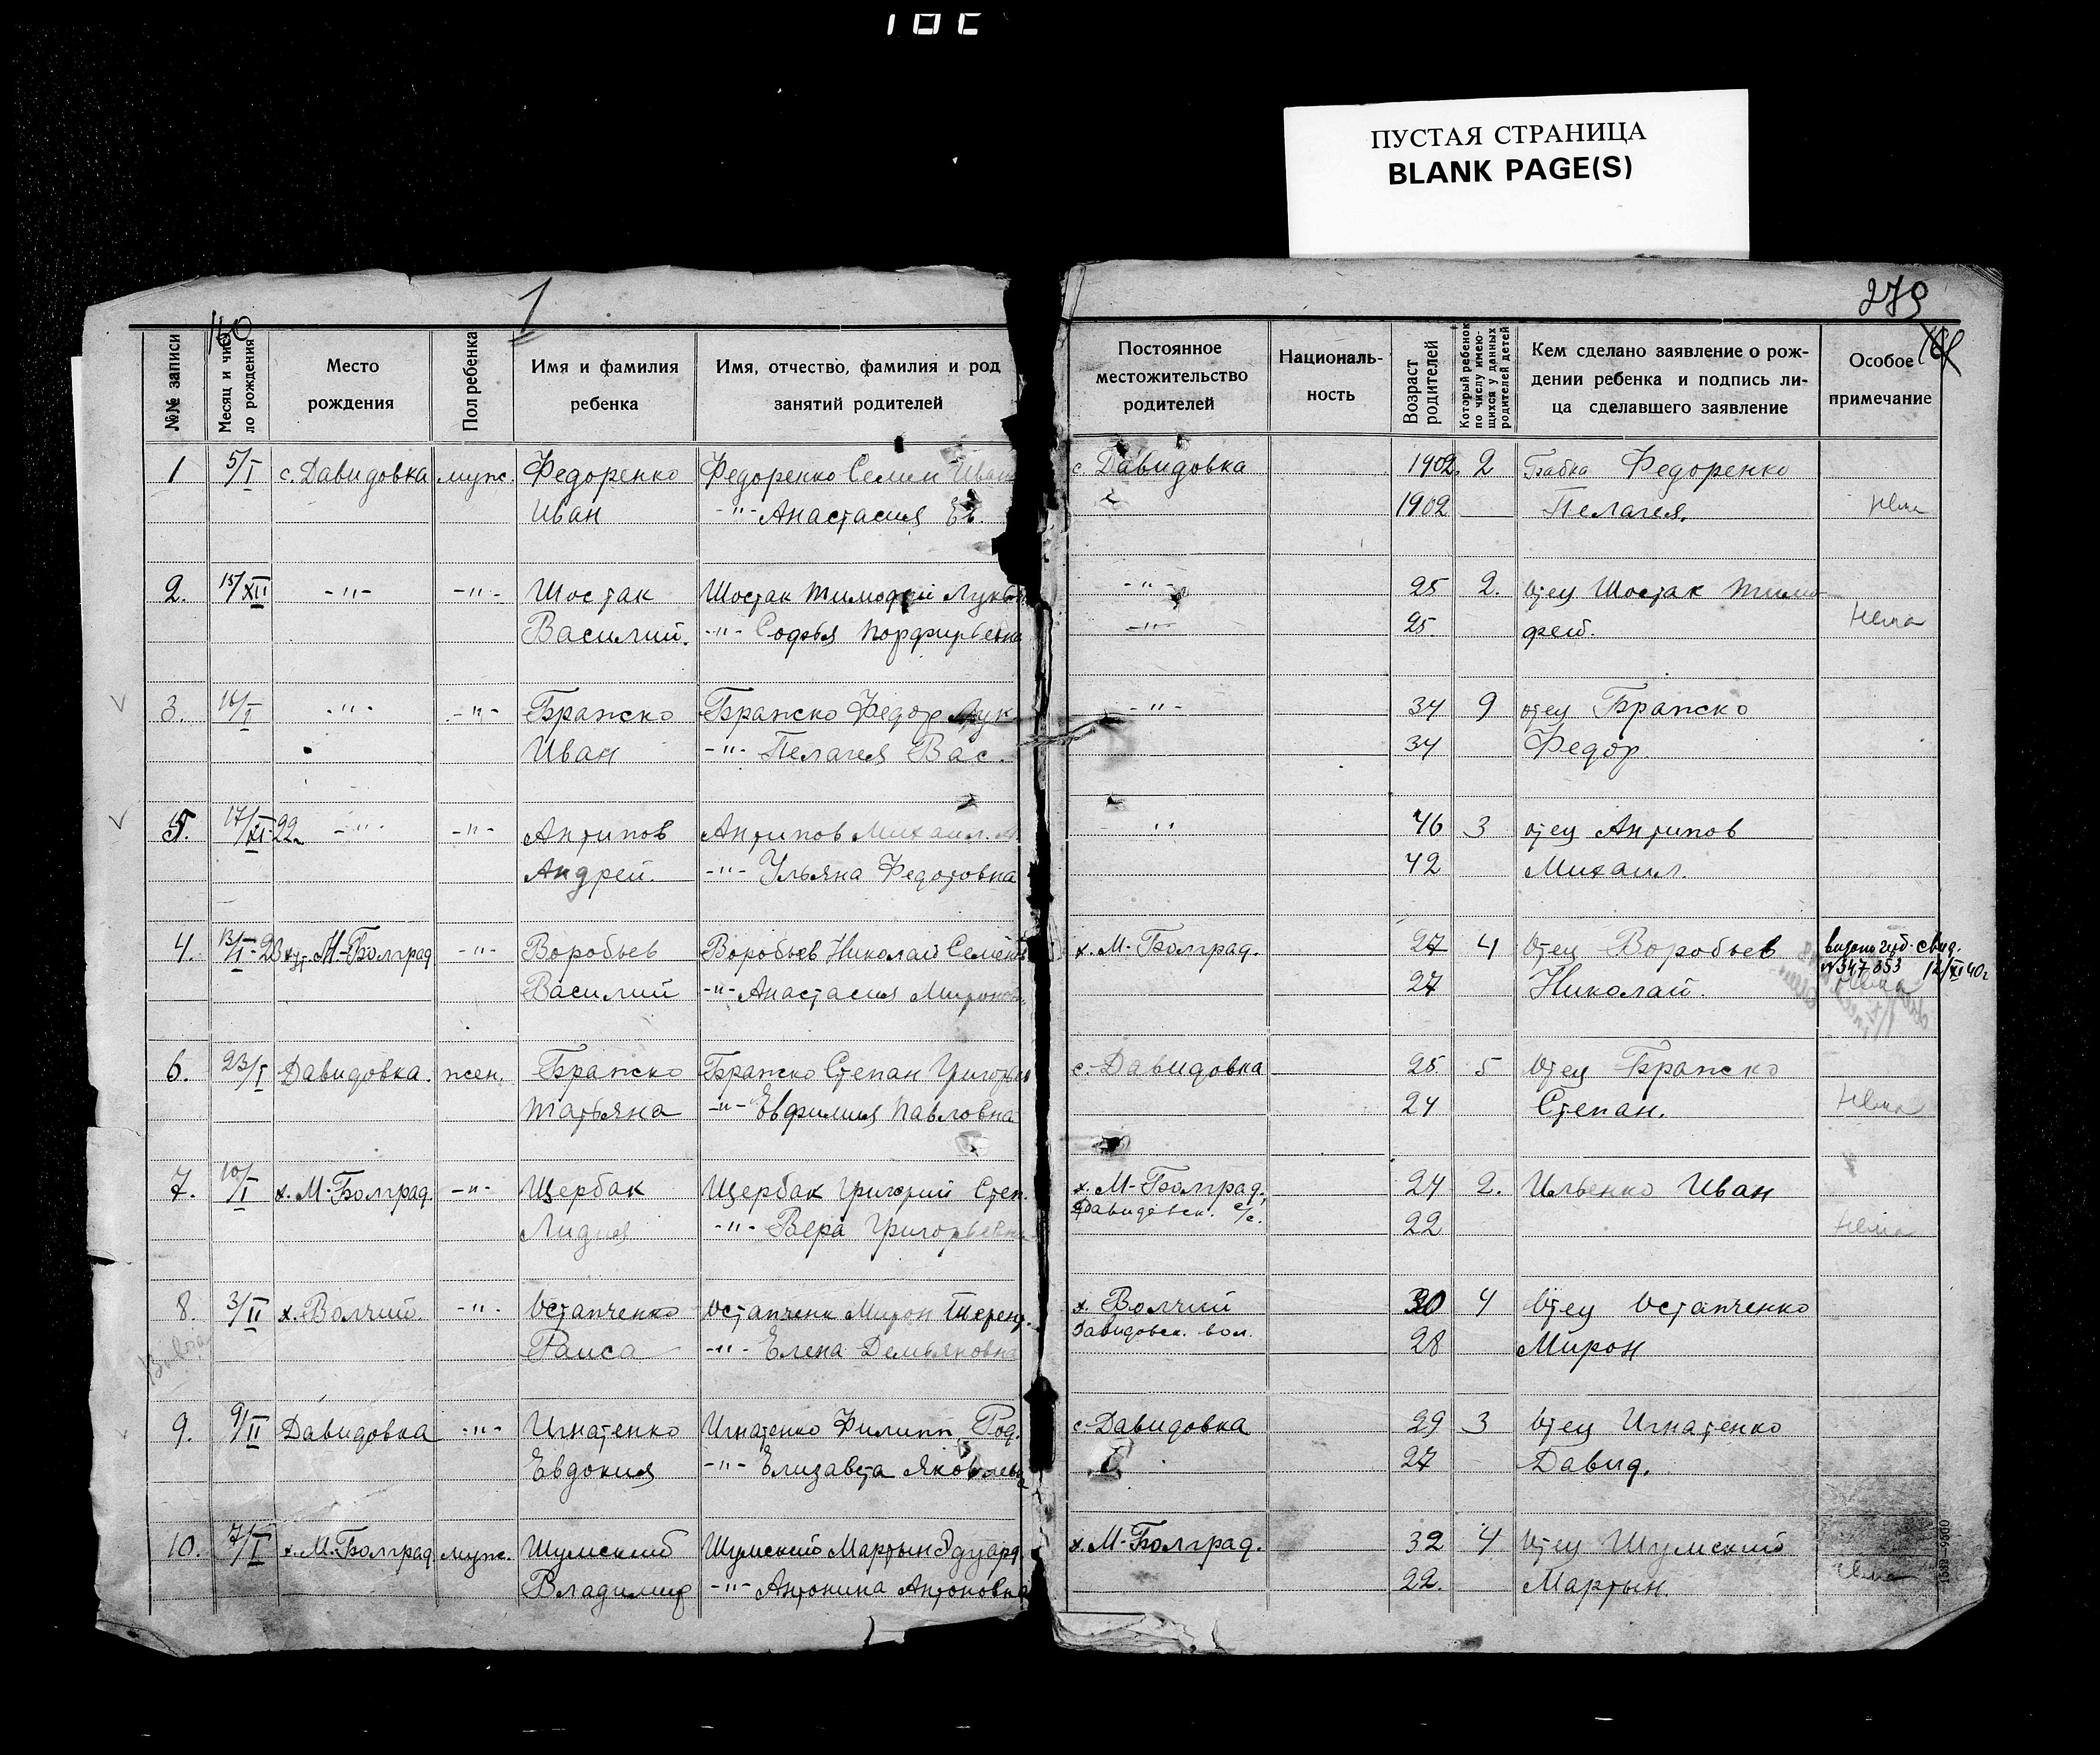 ПУСТАЯ СТРАНИЦА
BLANK PAGE(S)
1
160
279
№№ записи
Месяц и число рождения
Место рождения
Пол ребенка
Имя и фамилия ребенка
Имя, отчество, фамилия и род занятий родителей
Постоянное местожительство родителей
Националь-
ность
Возраст родителей
Который ребенок по числу имею-
щихся у данных родителей детей
Кем сделано заявление о рож-
дении ребенка и подпись ли-
ца сделавшего заявление
Особое примечание
1 5/I с. Давидовка муж. Федоренко Федоренко Семен Иван с. Давидовка 1902 2 Бабка Федоренко
Иван -"- Анастасия Ев. 1902 Пелагея. Нема
2. 15/XII -"- -"- Шостак Шостак Тимофей Лукья -"- 25 2. Отец Шостак Тимо
Василий. -"- Софья Порфирьевна -"- 25 фей. Нема
3. 14/I -"- -"- Бражко Бражко Федор Лук -"- 34 9 отец Бражко
Иван -"- Пелагея Вас. 34 Федор.
5. 17/XI-22г. -"- -"- Антипов Антипов Михаил. " 46 3 отец Антипов
Андрей. -"- Ульяна Федотовна 42 Михаил.
4. 13/I-23 хут. М-Болград -"- Воробьев Воробьев Николай Семенов х. М-Болград. 27 4 Отец Воробьев
Василий -"- Анастасия Миронов 27 Николай. № 347353 12/XI 40г
6. 23/I Давидовка. жен. Бражко Бражко Степан Григорьев с. Давидовка 25 5 Отец Бражко
Татьяна -"- Евфимия Павловна 24 Степан. Нема
7. 10/I х. М-Болград. -"- Щербак Щербак Григорий Степ. х. М-Болград, 24 2. Ильенко Иван
Давидовск. с/с.
Лидия -"- Вера Григорьевна 22 Нема
8. 3/II х. Волчий. -"- Остапченко Остапченк Мирон Терент. х. Волчий 30 4 Отец Остапченко
Давидовск. вол.
Раиса -"- Елена Демьяновна 28 Мирон
9. 9/II Давидовка -"- Игнатенко Игнатенко Филипп Род. с. Давидовка 29 3 Отец Игнатенко
Евдокия -"- Елизавета Яковлевна 27 Давид.
10. 7/I х. М-Болград муж. Шумский Шумский Мартын Эдуард х. М-Болград. 32 4 Отец Шумский
Владимир -"- Антонина Антоновна 22. Мартын. Нема